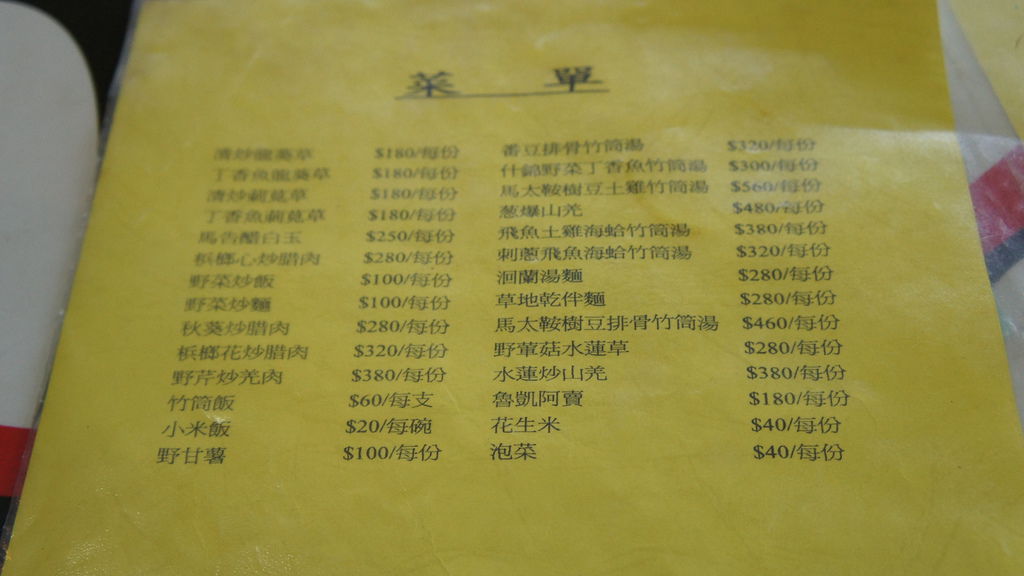 菜單
清炒龍葵草 $180/每份
丁香魚龍葵草 $180/每份
清炒蒴莧草 $180/每份
丁香魚蒴莧草 $180/每份
馬告醋白玉 $250/每份
梹榔心炒腊肉 $280/每份
野菜炒飯 $100/每份
野菜炒麵 $100/每份
秋葵炒腊肉 $280/每份
梹榔花炒腊肉 $320/每份
野芹炒羌肉 $380/每份
竹筒飯 $60/每支
小米飯 $20/每碗
野甘薯 $100/每份
番豆排骨竹筒湯 $320/每份
什錦野菜丁香魚竹筒湯 $300/每份
馬太鞍樹豆土雞竹筒湯 $560/每份
葱爆山羌 $480/每份
飛魚土雞海蛤竹筒湯 $380/每份
刺蔥飛魚海蛤竹筒湯 $320/每份
洄蘭湯麵 $280/每份
草地乾伴麵 $280/每份
馬太鞍樹豆排骨竹筒湯 $460/每份
野蕈菇水蓮草 $280/每份
水蓮炒山羌 $380/每份
魯凱阿賣 $180/每份
花生米 $40/每份
泡菜 $40/每份